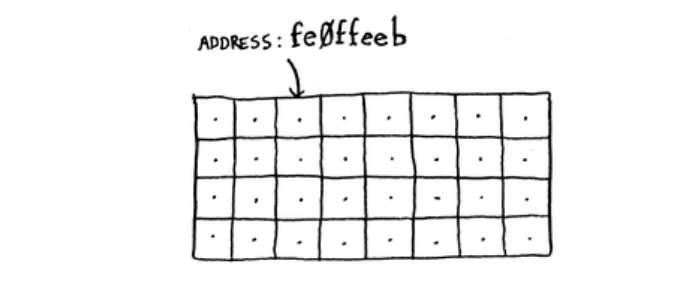 ADDRESS: feØffeeb